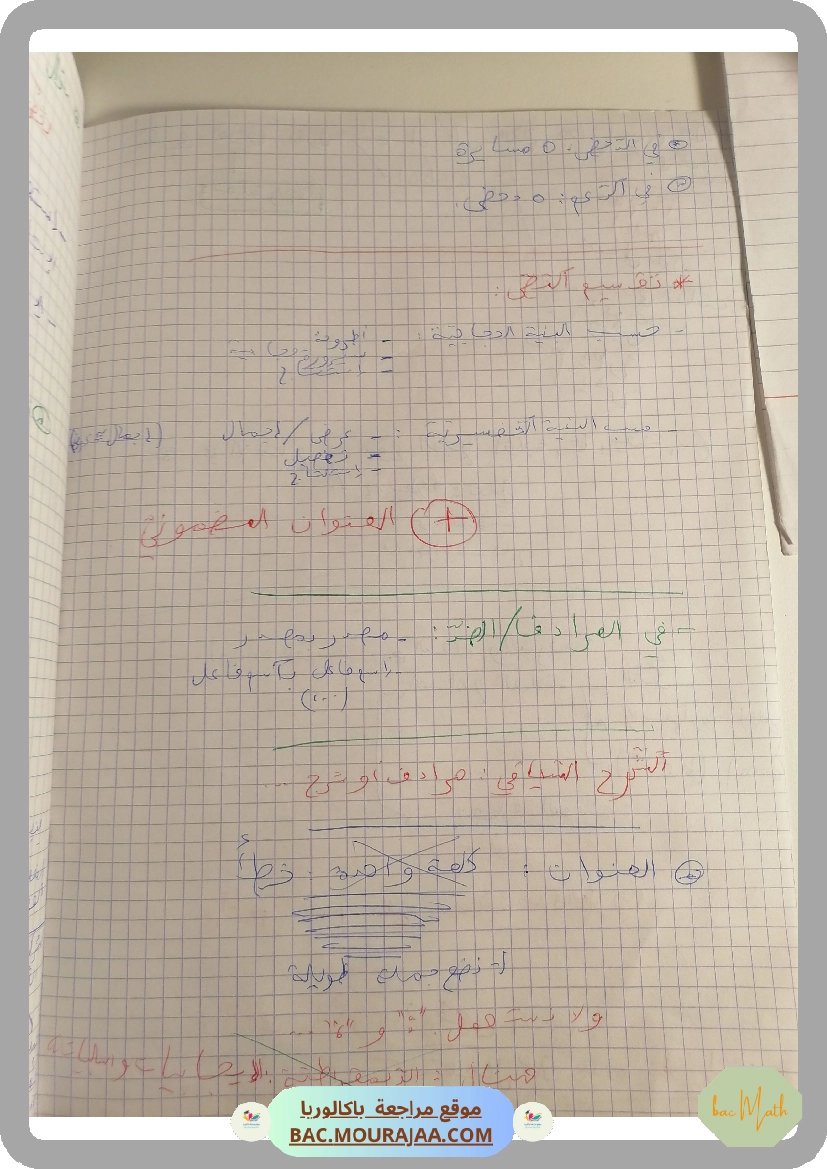 في الدحض: 0 مسايرة
في الدّعم: 0 دحض.
* تقسيم النصّ:
- حسب البنية الحجاجية: - أطروحة
- سيرورة حجاجية
- استنتاج
- حسب البنية التفسيرية: - عرض / إجمال
- تفصيل
- إستنتاج
+ العنوان المضموني
- في المرادف/الضدّ: - مصدر بمصدر
- اسم فاعل باسم فاعل
(...)
الشّرح السّياقي: مرادف أو شرح ...
العنوان: كلمة واحدة: خطأ
1- نضع جملة طويلة
ولا نستعمل: ":" و
مثال:
موقع مراجعة باكالوريا
BAC.MOURAJAA.COM
bac Math